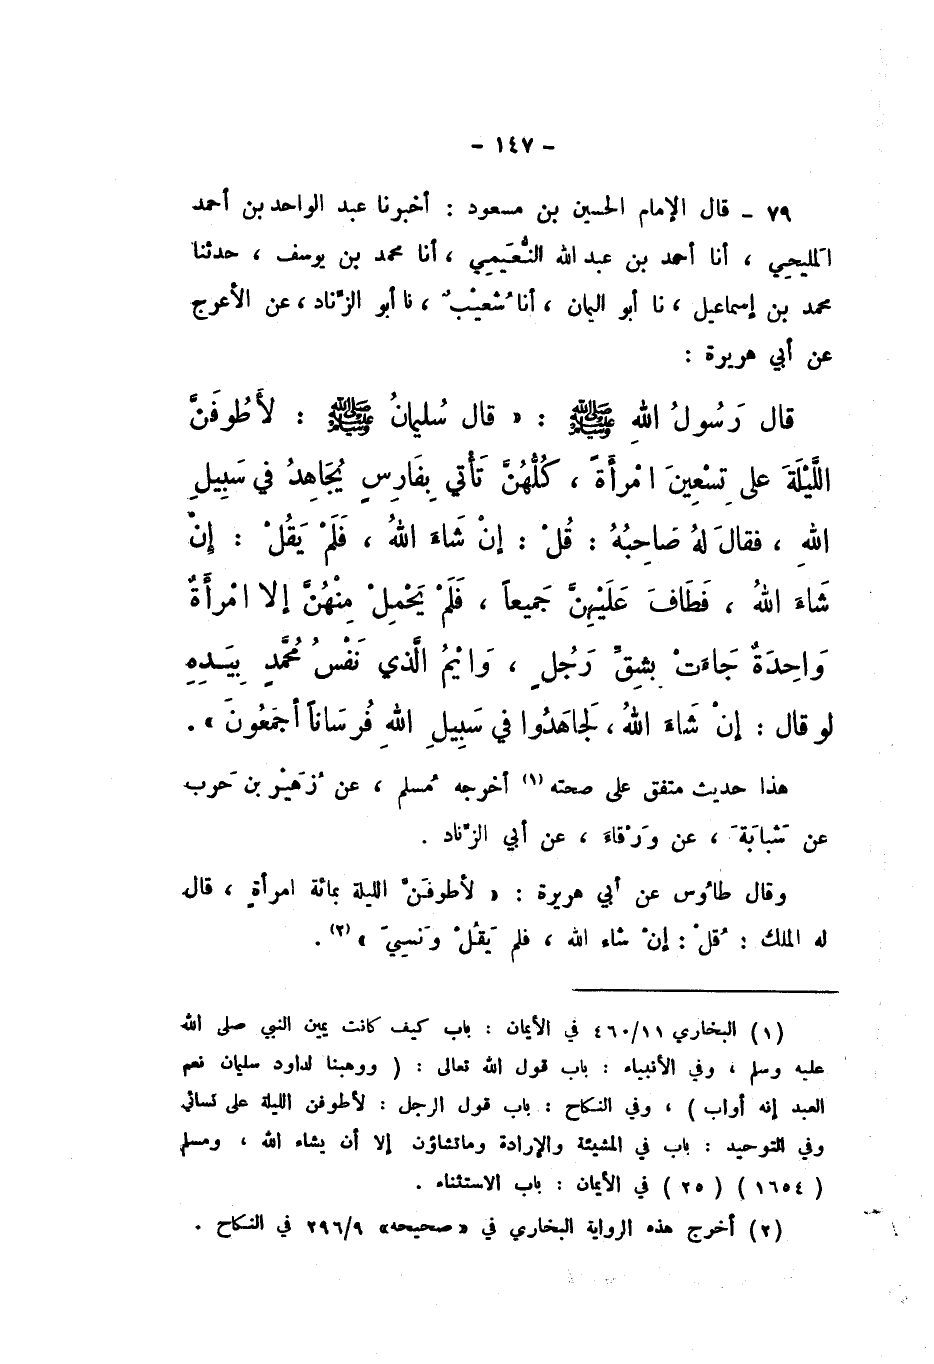 - ١٤٧ -
٧٩ - قال الإمام الحسين بن مسعود : أخبرنا عبد الواحد بن أحمد
المليحي ، أنا أحمد بن عبد الله النُّعَيمي ، أنا محمد بن يوسف ، حدثنا
محمد بن إسماعيل ، نا أبو اليمان ، أنا شُعيْبٌ ، نا أبو الزِّناد ، عن الأعرج
عن أبي هريرة :
قال رَسُولُ اللهِ ﷺ : « قال سُليمانُ ﷺ : لأَطُوفَنَّ
اللَّيْلَةَ على تِسْعِينَ امْرأَةً ، كُلُّهُنَّ تَأْتي بِفَارِسٍ يُجَاهِدُ في سَبِيلِ
اللهِ ، فقالَ لهُ صَاحِبُهُ : قُلْ : إنْ شَاءَ اللهُ ، فَلَمْ يَقُلْ : إنْ
شَاءَ اللهُ ، فَطَافَ عَلَيْهِنَّ جَمِيعاً ، فَلَمْ يَحْمِلْ مِنْهُنَّ إلا امْرأَةٌ
وَاحِدَةٌ جَاءَتْ بِشِقِّ رَجُلٍ ، وَايْمُ الَّذي نَفْسُ مُحَمَّدٍ بِيَدِهِ
لو قال : إنْ شَاءَ اللهُ ، لَجاهَدُوا في سَبِيلِ اللهِ فُرسَاناً أجمَعُونَ » .
هذا حديث متفق على صحته (١) أخرجه مُسلم ، عن زُهَيْر بن حَرب
عن شَبابَةَ ، عن وَرْقاءَ ، عن أبي الزِّناد .
وقال طاوُس عن أبي هريرة : « لأطوفَنَّ الليلة بمائة امرأةٍ ، قال
له الملك : قُلْ : إنْ شاء الله ، فلم يَقُلْ وَنَسِيَ » (٢) .
(١) البخاري ٤٦٠/١١ في الأيمان : باب كيف كانت يمين النبي صلى الله
عليه وسلم ، وفي الأنبياء : باب قول الله تعالى : ( ووهبنا لداود سليمان نعم
العبد إنه أواب ) ، وفي النكاح : باب قول الرجل : لأطوفن الليلة على نسائي
وفي التوحيد : باب في المشيئة والإرادة وماتشاؤن إلا أن يشاء الله ، ومسلم
( ١٦٥٤ ) ( ٢٥ ) في الأيمان : باب الاستثناء .
(٢) أخرج هذه الرواية البخاري في « صحيحه» ٢٩٦/٩ في النكاح .